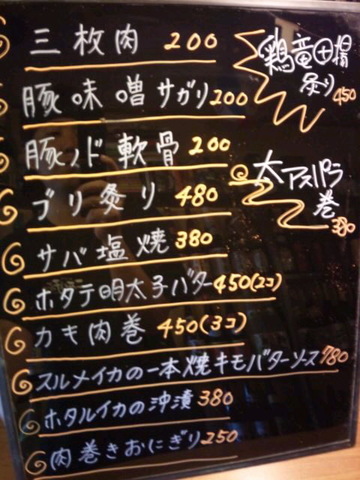 三枚肉 200
豚味噌サガリ 200
豚ノド軟骨 200
ブリ炙り 480
サバ塩焼 380
ホタテ明太子バター 450(2コ)
カキ肉巻 450(3コ)
スルメイカの一本焼キモバターソース 780
ホタルイカの沖漬 380
肉巻きおにぎり 250
鶏竜田揚
炙り
450
太アスパラ
巻
380